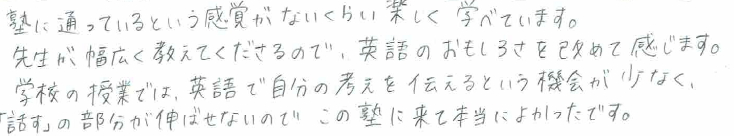 塾に通っているという感覚がないくらい楽しく学べています。
先生が幅広く教えてくださるので、英語のおもしろさを改めて感じます。
学校の授業では、英語で自分の考えを伝えるという機会が少なく、
「話す」の部分が伸ばせないのでこの塾に来て本当によかったです。